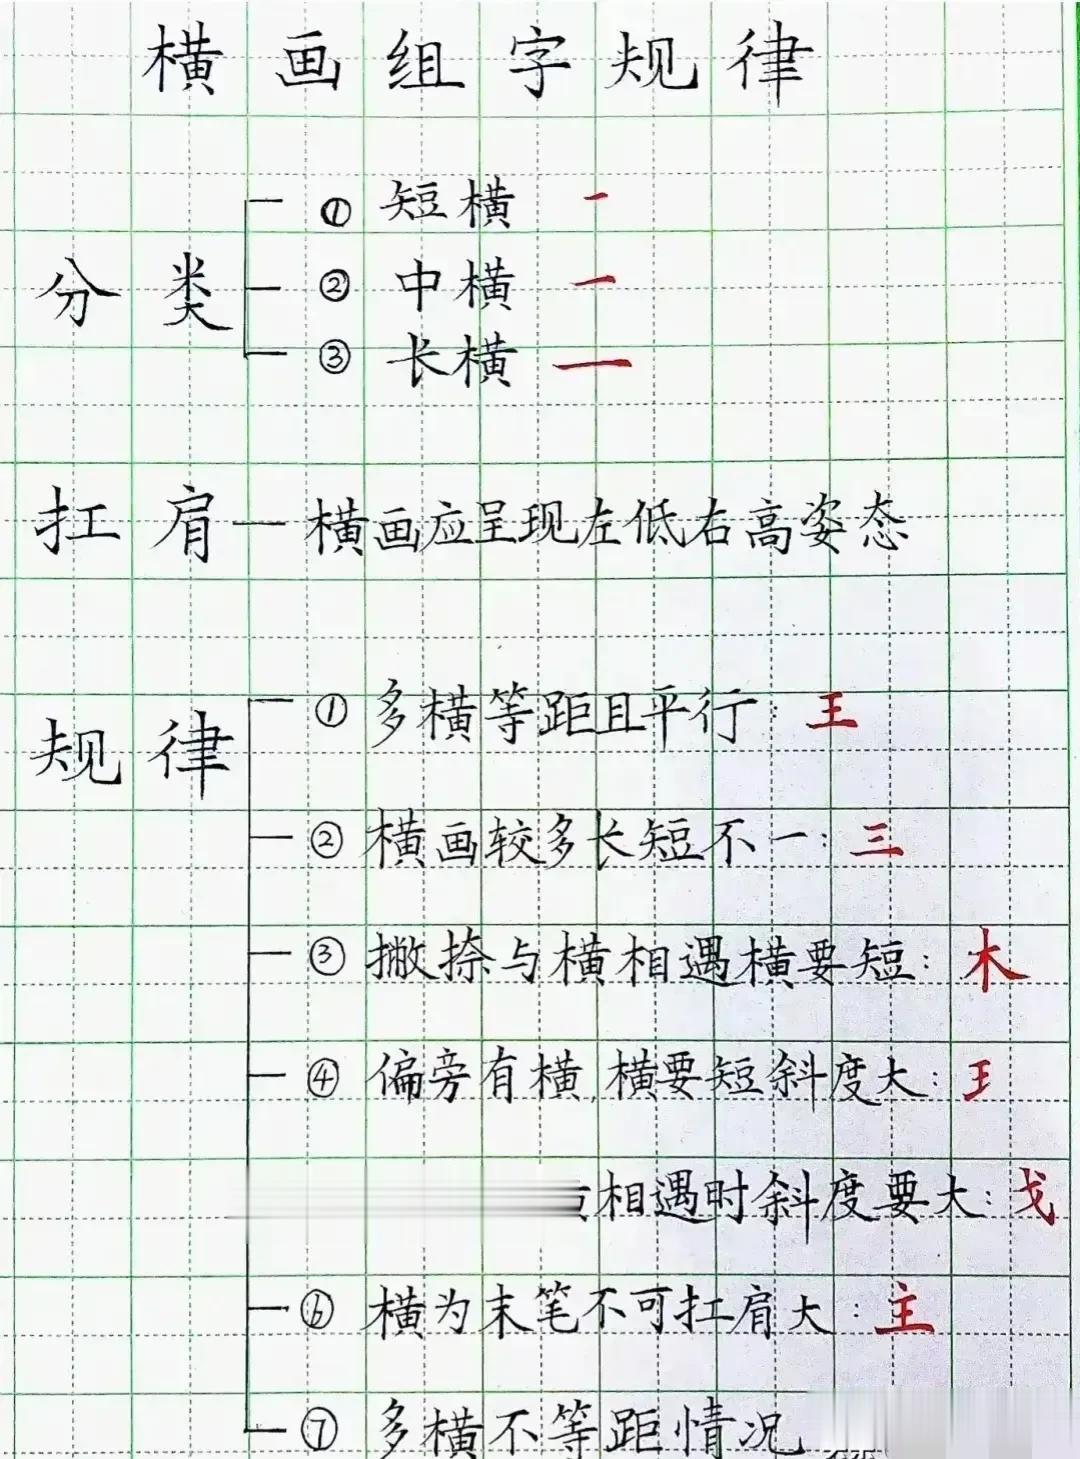 横画组字规律
① 短横 一
分类 ② 中横 一
③ 长横 一
扛肩 一 横画应呈现左低右高姿态
规律 ① 多横等距且平行: 王
② 横画较多长短不一: 三
③ 撇捺与横相遇横要短: 木
④ 偏旁有横,横要短斜度大: 王
相遇时斜度要大: 戈
⑥ 横为末笔不可扛肩大: 主
⑦ 多横不等距情况